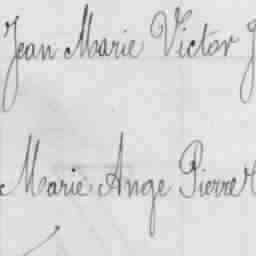 Jean Marie Victor J
Marie Ange Pierre